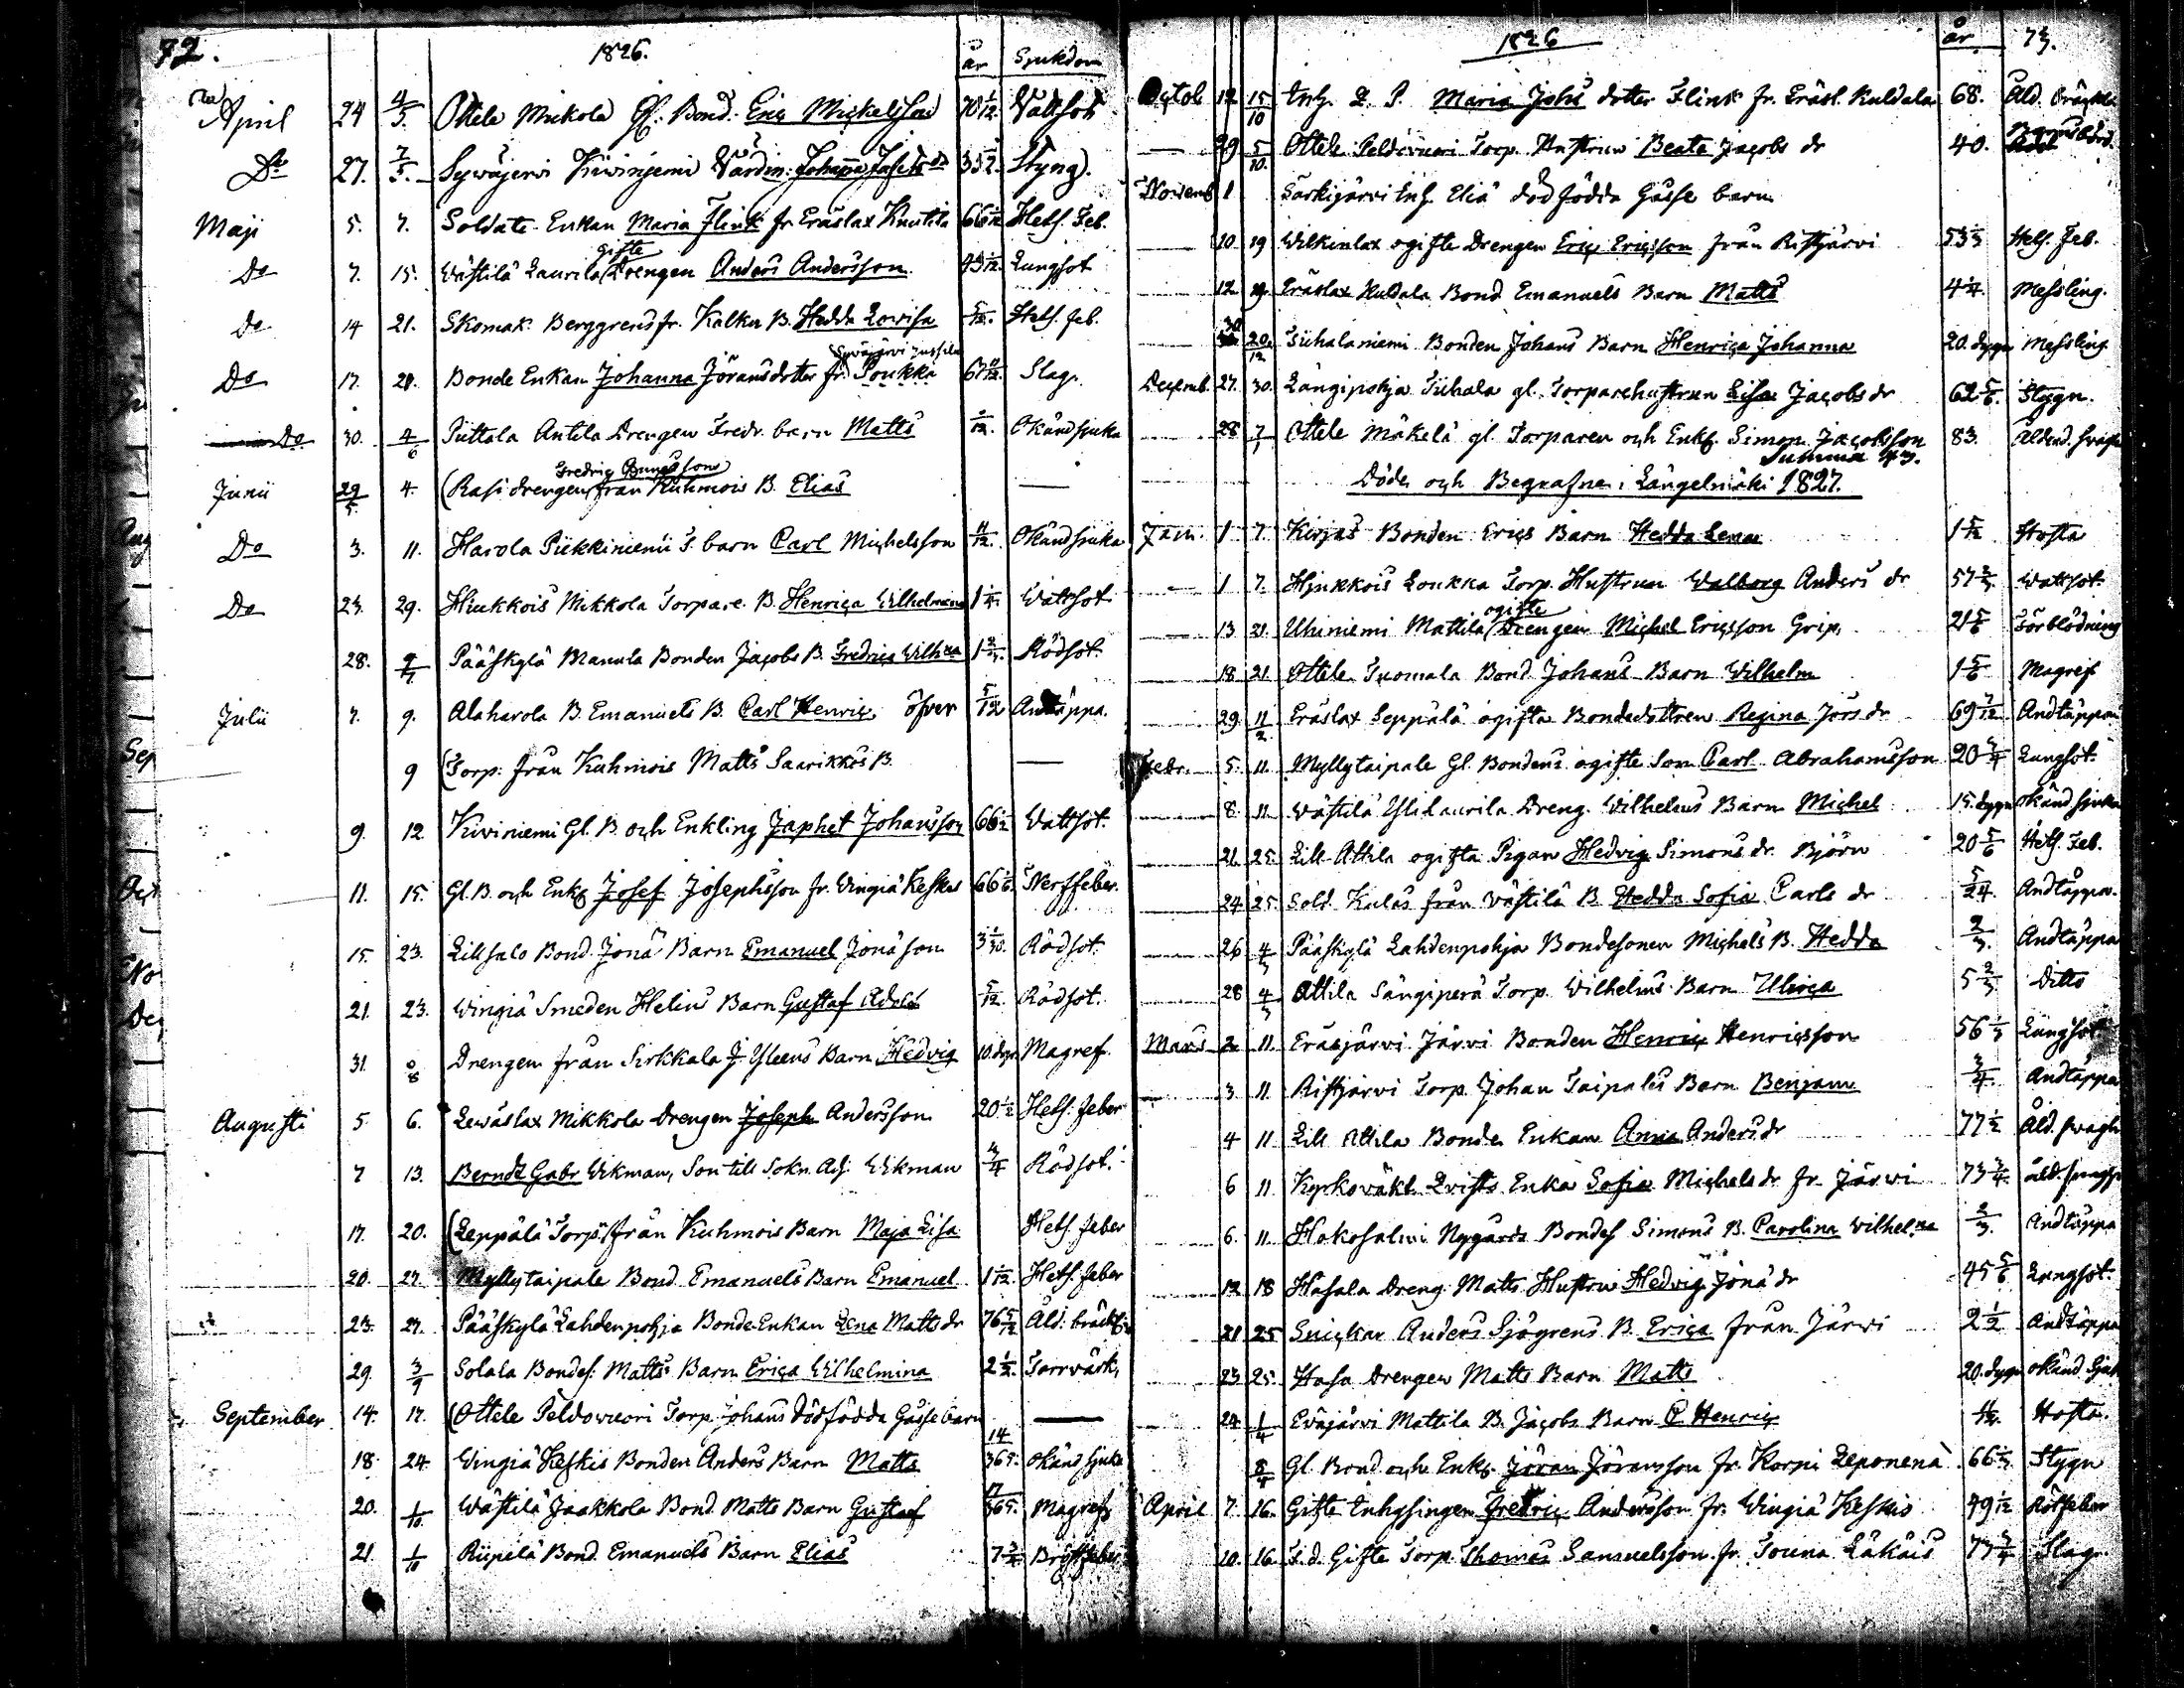 72.
1826.
år Sjukdom
April 24 4/5. Ottele Mickola Gl. Bond. Eric Mickelsson 70 1/12. Vattsot
Do 27. 7/5. Sywäjerwi Kiwinjemi Värdin: Johanna Josefs dr 35 1/2. Styng.
Maji 5. 7. Soldats Enkan Maria Flink fr Eräslax Knutila Hets. Feb.
Do 7. 15. Wästilä Laurila gifte Drengen Anders Andersson 43 1/12. Lungsot
do 14 21. Skomak. Berggrens fr. Kalku B. Hedda Lovisa 5/12. Hets. feb.
Do 17. 21. Bonde Enkan Johanna Jöransdotter fr. Syväjärvi Jussila Poukka Slag.
Do 30. 4/6 Puttala Antila Drengen Fredr. barn Matts 2/12. Okänd sjuka
Junii 29/5. 4. (Rasi drengen Fredric från Kuhmois B. Elias —
Do 3. 11. Harola Piikkiniemi T. barn Carl Michelsson 11/12. Okänd sjuka
Do 23. 29. Hiukkois Mikkola Torpare B. Henrica Wilhelmina 1 1/4. Wattsot
28. 9/7 Pääskylä Manula Bonden Jacobs B. Fredrica Wilhna 1 3/4. Rödsot.
Julii 7. 9. Alaharola B. Emanuels B. Carl Henric öfver 5/12 Andtäppa.
9 (Torp. från Kuhmois Matts Saarikkos B. —
9. 12 Kiviniemi Gl. B. och Enkling Japhet Johansson 66 1/2 Wattsot.
11. 15. Gl. B. och Enkl Josef Josephsson fr. Wingiä Keskis 66 1/6. Nerffeber.
15. 23. Lillsalo Bond. Jonä Barn Emanuel Jonä son 3 1/30. Rödsot.
21. 23. Wingiä Smeden Helins Barn Gustaf Adolf 5/12. Rödsot.
31. 6/8 Drengen från Sirkkala J. Yleens Barn Hedvig 10. dgr. Magref
Augusti 5 6. Lewäslax Mikkola Drengen Joseph Andersson 20 1/2 Hets. feber
7 13. Berndt Gabr Wikman, Son till Sokn. Adj. Wikman 3/4 Rödsot.
17. 20. (Leppälä Torp. från Kuhmois Barn Maja Lisa Hets. feber
20. 27. Myllytaipale Bond. Emanuels Barn Emanuel 1 1/12. Hets. feber
23. 27. Pääskylä Lahdenpohja Bonde Enkan Lena Matts dr 76 5/12 Åld. bräckl.
29. 3/9 Solala Bondes. Matts Barn Erica Wilhelmina 2 1/2. Torrvärk,
September 14. 17. (Ottele Peldovuori Torp. Johans Dödfödda Gosse barn —
18. 24. Wingiä Keskis Bonden Anders Barn Matts 14/365. okänd sjuka
20. 1/10. Wästilä Jaakkola Bond. Matts Barn Gustaf 17/365. Magref
21 1/10 Riipilä Bond. Emanuels Barn Elias 7 3/4 Bröstfeber
1826
år 73.
Octob. 12 15/10 Inh. Maria Johs dotter Flink fr. Eräsl. Kuldala 68. Åld. bräckl.
— 29 5/10. Ottele Peldovuori Torp. Hustrun Beata Jacobs dr 40.
Novemb 1 Särkijärvi Inh. Eliä dödfödda Gosse barn
— 10. 19 Wilkinlax ogifte Drengen Eric Ericsson från Ristjärvi 53 1/3 Hets. Feb.
— 12 19. Eräslax Kuldala Bond Emanuels Barn Matts 4 1/4. Messling.
— 20/12 Tiihalaniemi Bonden Johans Barn Henrica Johanna 20. dygn Messling
Decemb. 27. 30. Längipohja Tiihala gl. Torparehustrun Lisa Jacobs dr 62 5/6. Stygn.
28 7/1 Ottele Mäkelä gl. Torparen och Enkl. Simon Jacobsson 83. Ålderd. svagh
Summa 43.
Döde och Begrafne i Längelmäki 1827.
Jan. 1 7. Kirjas Bonden Erics Barn Hedda Lena 1 5/12 Hosta
— 1 7. Hjukkois Loukka Torp. Hustrun Walborg Anders dr 57 2/3 Wattsot.
— 13. 21. Uhiniemi Mattila ogifte Drengen Michel Ericsson Grip, 21 5/6 Förblödning
18 21 Ottele Tuomala Bond Johans Barn Wilhelm 1 5/6 Magref
29. 11/2 Eräslax Seppälä ogifta Bondedottren Regina Jörs dr 69 7/12 Andtäppa
Febr. 5. 11. Myllytaipale Gl. Bondens ogifte Son Carl Abrahamsson 20 3/4 Lungsot.
8. 11. Wästilä Ylilaurila Dreng. Wilhelms Barn Michel 15. dygn okänd sjuka
21. 25. Lill-Attila ogifta Pigan Hedvig Simons dr Björn 20 5/6 Hets. Feb.
24 25 Sold. Kulas från Wästilä B. Hedda Sofia Carls dr 5/24. Andtäppa.
26 4/3 Pääskylä Lahdenpohja Bondesonen Michels B. Hedda 2/3. Andtäppa
28 4/3 Attila Sängiperä Torp. Wilhelms Barn Ulrica 5 2/3 Ditto
Mars 2 11. Eräsjärvi Järvi Bonden Henric Henricsson 56 1/3 Lungsot
3 11 Ristjärvi Torp. Johan Taipales Barn Benjam 3/4. Andtäppa
4 11. Lill Attila Bonde Enkan Anna Anders dr 77 1/2 Åld. svagh
6 11. Kyrkowäkt. Qvists Enka Sofia Michels dr fr. Järwi 73 3/4. åld. svagh
6. 11. Hokosalmi Nygårds Bondes Simons B. Carolina Wilhelna 2/3. Andtäppa
12 18 Hasala Dreng. Matts Hustru Hedvig Jonä dr 45 5/6 Lungsot.
21 25 Snickar Anders Sjögrens B. Erica från Järwi 2 1/2 Andtäppa
23 25. Hasa Drengen Matts Barn Matts 20. dygn okänd Sjuk
24 1/4 Eväjärvi Mattila B. Jacobs Barn C Henric Hosta.
8/4 Gl. Bond och Enkl. Jöran Jöransson fr. Korpi Leponena 66 1/3 Stygn
April 7. 16. Gifte Inhysingen Fredric Andersson fr. Wingiä Keskis 49 1/12 Rötfeber
10. 16. F. d. Gifte Torp. Thomas Samuelsson fr. Touna Läkäis 73 3/4 Slag